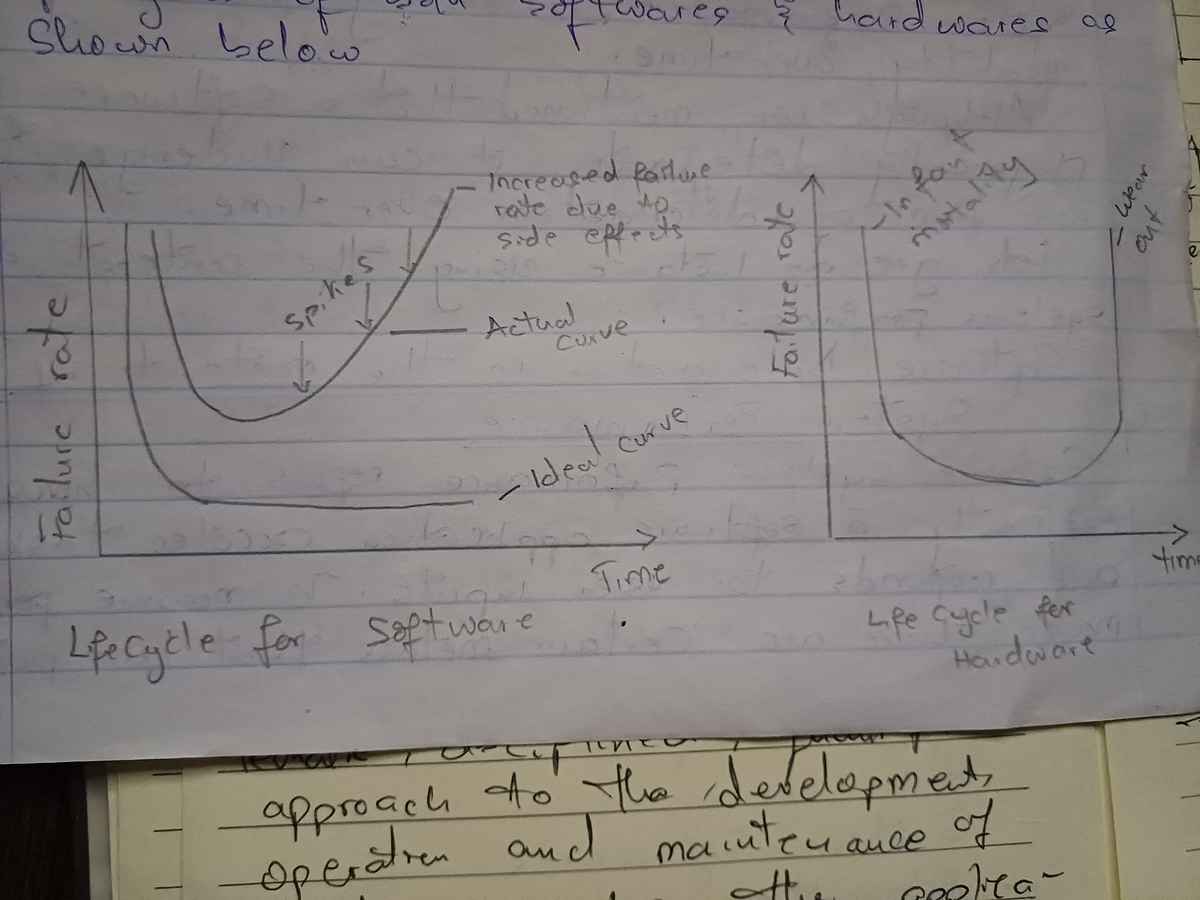 of softwares & hardwares as
Shown below
Increased failure
rate due to
side effects
spikes
Actual
curve
Ideal curve
Failure rate
Time
Lifecycle for Software
Infant
mortality
wear
out
Failure rate
time
Life cycle for
Hardware
approach to the development,
operation and maintenance of
the applica-